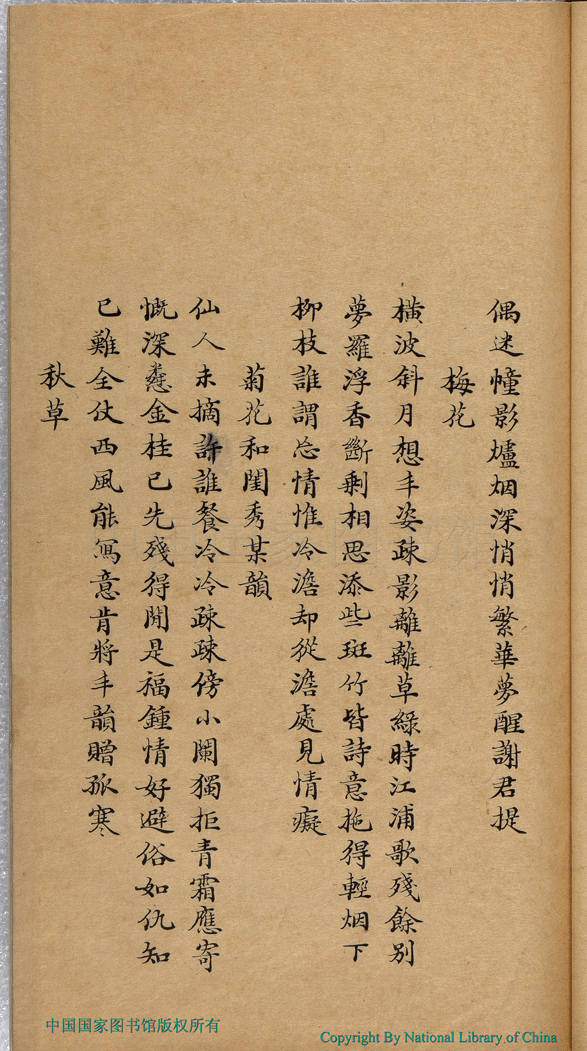 偶迷幢影爐烟深悄悄繁華夢醒謝君提
梅花
橫波斜月想丰姿疎影離離草綠時江浦歌殘餘別
夢羅浮香斷剩相思添些斑竹皆詩意拖得輕烟下
柳枝誰謂忘情惟冷澹却從澹處見情癡
菊花和閨秀某韻
仙人未摘許誰餐冷冷疎疎傍小闌獨拒青霜應寄
慨深 金桂已先殘得開是福鍾情好避俗如仇知
已難全仗西風能寫意肯將丰韻贈孤寒
秋草
中国国家图书馆版权所有
Copyright By National Library of China